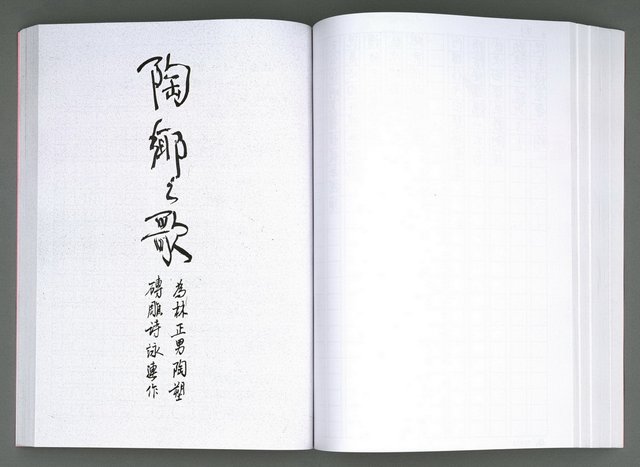 陶鄉之歌
為林正男陶塑
磚雕詩詠連作